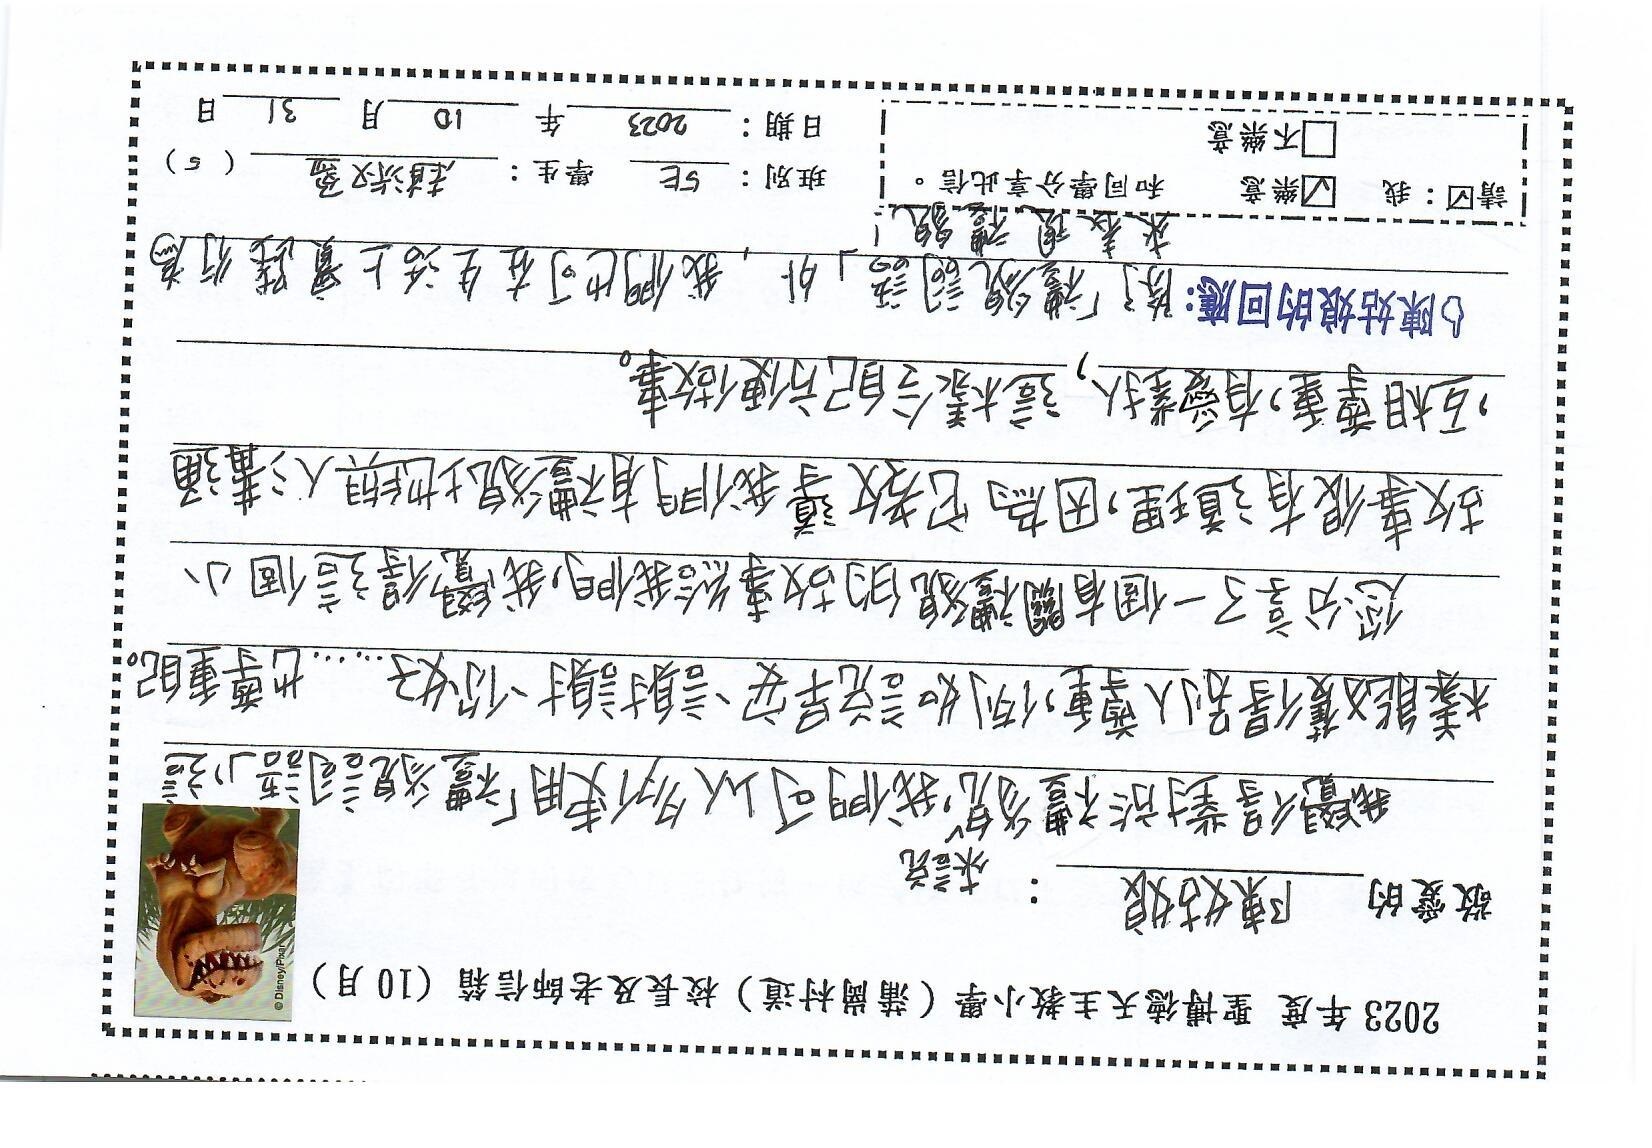 2023 年度 聖博德天主教小學（蒲崗村道）校長及老師信箱（10 月）
© Disney/Pixar
敬愛的 陳姑娘 ：
來說
我覺得對於禮貌，我們可以多使用「禮貌詞語」，這
樣能夠獲得別人尊重，例如說早安、謝謝、你好……也尊重自己。
您分享了一個有關禮貌的故事給我們，我覺得這個小
故事很有道理，因為它教導我們有禮貌地與人溝通
，互相尊重，有愛對人，這樣令自己方便做事。
陳姑娘的回應：除了「禮貌詞語」外，我們也可在生活上實踐行為
來表現禮貌！
請☑：我 ☑樂意 和同學分享此信。
□不樂意
班別：5E 學生：趙 （5）
日期：2023 年 10 月 31 日